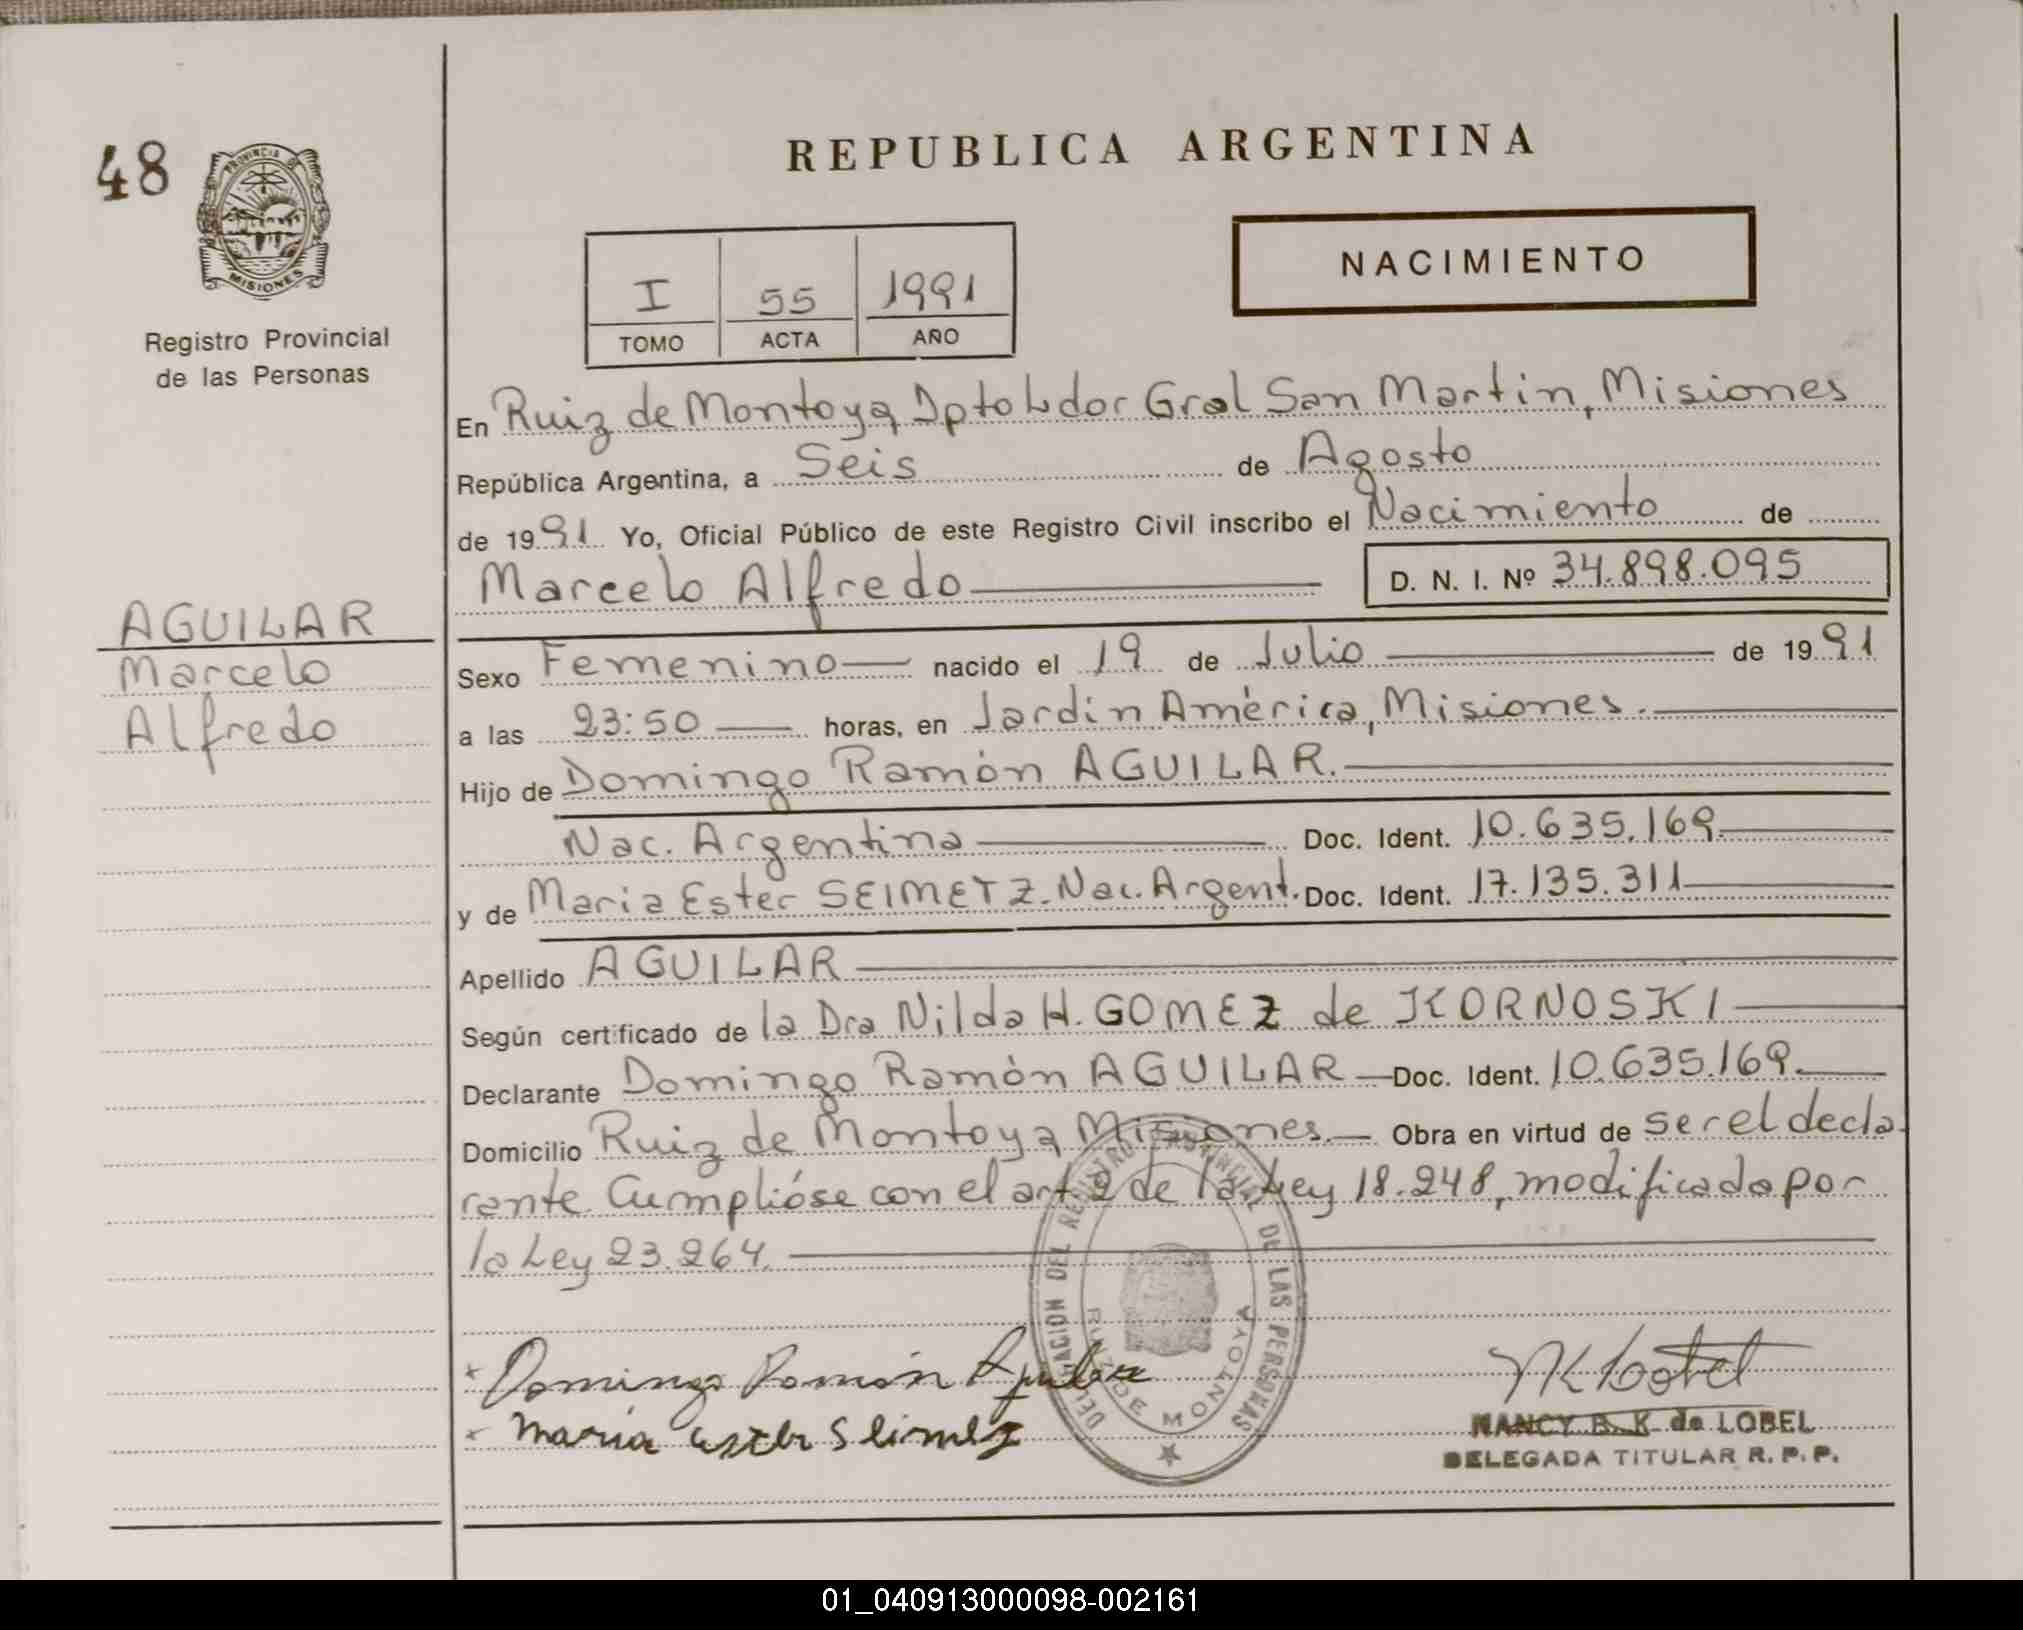 48
PROVINCIA DE
MISIONES
Registro Provincial
de las Personas
REPUBLICA ARGENTINA
I 55 1991
TOMO ACTA AÑO
NACIMIENTO
En Ruiz de Montoya, Dpto Ldor Gral San Martin, Misiones
República Argentina, a Seis de Agosto
de 1991 Yo, Oficial Público de este Registro Civil inscribo el Nacimiento de
Marcelo Alfredo D. N. I. Nº 34.898.095
AGUILAR
Marcelo
Alfredo
Sexo Femenino nacido el 19 de Julio de 1991
a las 23:50 horas, en Jardín América, Misiones.
Hijo de Domingo Ramón AGUILAR.
Nac. Argentina Doc. Ident. 10.635.169.
y de Maria Ester SEIMETZ. Nac. Argent. Doc. Ident. 17.135.311
Apellido AGUILAR
Según certificado de la Dra Nilda H. GOMEZ de KORNOSKI
Declarante Domingo Ramón AGUILAR Doc. Ident. 10.635.169.
Domicilio Ruiz de Montoya Misiones. Obra en virtud de ser el decla-
rante. Cumplióse con el art. 2 de la Ley 18.248, modificada por
la Ley 23.264.
DELEGACION DEL REGISTRO PROVINCIAL DE LAS PERSONAS
RUIZ DE MONTOYA
Domingo Ramón Aguilar
María Ester Seimetz
NANCY B. K. de LOBEL
DELEGADA TITULAR R. P. P.
01_040913000098-002161